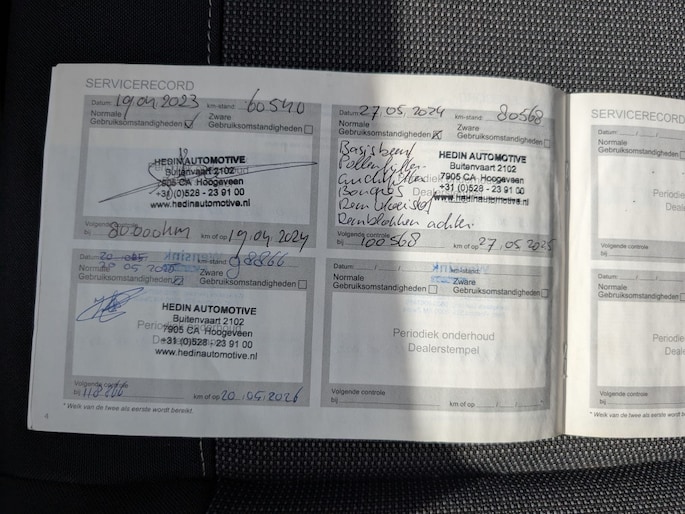 SERVICERECORD
Datum: 19.04.2023 km-stand: 60540
Normale Gebruiksomstandigheden Zware Gebruiksomstandigheden
HEDIN AUTOMOTIVE
Buitenvaart 2102
7905 CA Hoogeveen
+31 (0)528 - 23 91 00
www.hedinautomotive.nl
Volgende controle
bij 80.000km km of op 19.04.2024
Datum: 27.05.2024 km-stand: 80568
Normale Gebruiksomstandigheden Zware Gebruiksomstandigheden
Basisbeurt
Pollenfilter
Luchtfilter
Bougies
Remvloeistof
Remblokken achter
HEDIN AUTOMOTIVE
Buitenvaart 2102
7905 CA Hoogeveen
+31 (0)528 - 23 91 00
www.hedinautomotive.nl
Volgende controle
bij 100568 km of op 27.05.2025
05 98866
Normale Gebruiksomstandigheden Zware Gebruiksomstandigheden
HEDIN AUTOMOTIVE
Buitenvaart 2102
7905 CA Hoogeveen
+31 (0)528 - 23 91 00
www.hedinautomotive.nl
Periodiek onderhoud
Volgende controle
bij 118866 km of op 20.05.2026
Datum: / / km-stand:
Normale Gebruiksomstandigheden Zware Gebruiksomstandigheden
Periodiek onderhoud
Dealerstempel
Volgende controle
bij km of op / /
4
* Welk van de twee als eerste wordt bereikt.
SERVICERECORD
Datum:
Normale
Gebruiksomstandigheden
Periodi
Deale
Volgende controle
bij
Datum:
Normale
Gebruiksomstandigheden
Periodi
Deale
Volgende controle
bij
* Welk van de twee als eerste wordt